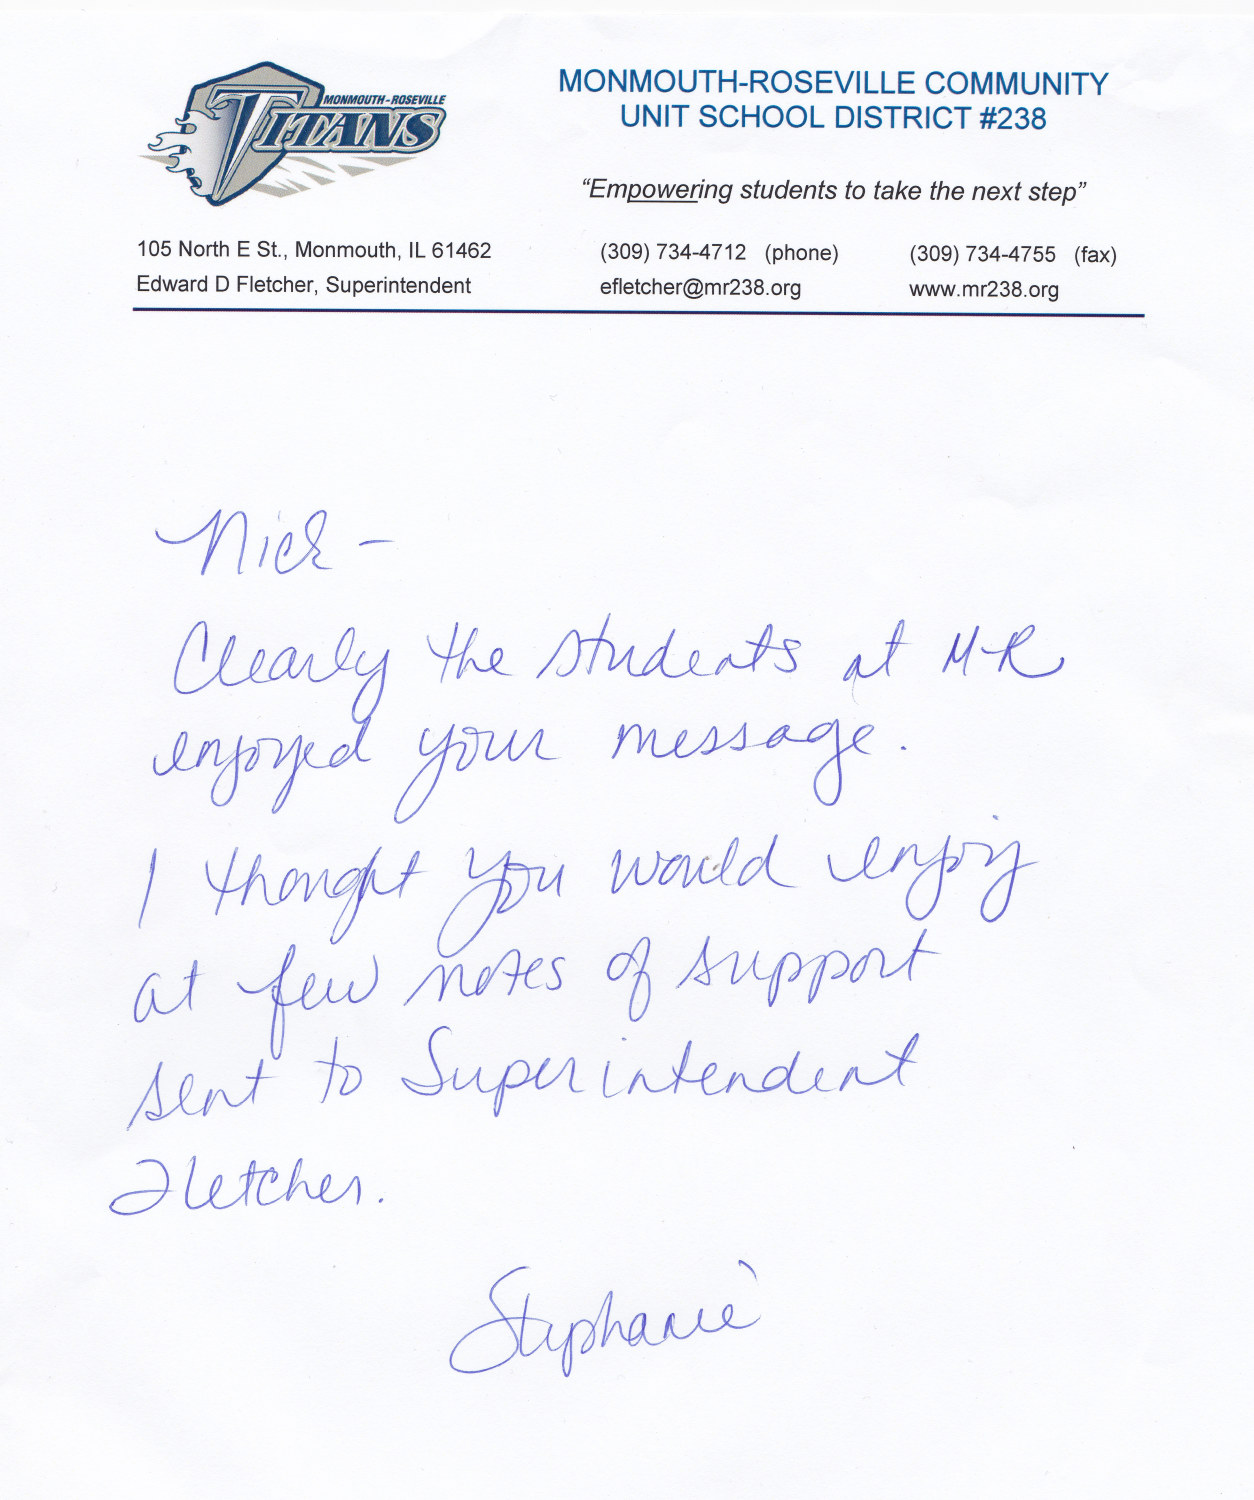 MONMOUTH-ROSEVILLE
TITANS
MONMOUTH-ROSEVILLE COMMUNITY
UNIT SCHOOL DISTRICT #238
“Empowering students to take the next step”
105 North E St., Monmouth, IL 61462 (309) 734-4712 (phone) (309) 734-4755 (fax)
Edward D Fletcher, Superintendent efletcher@mr238.org www.mr238.org
Nick -
Clearly the students at M-R
enjoyed your message.
I thought you would enjoy
at few notes of support
sent to Superintendent
Fletcher.
Stephanie